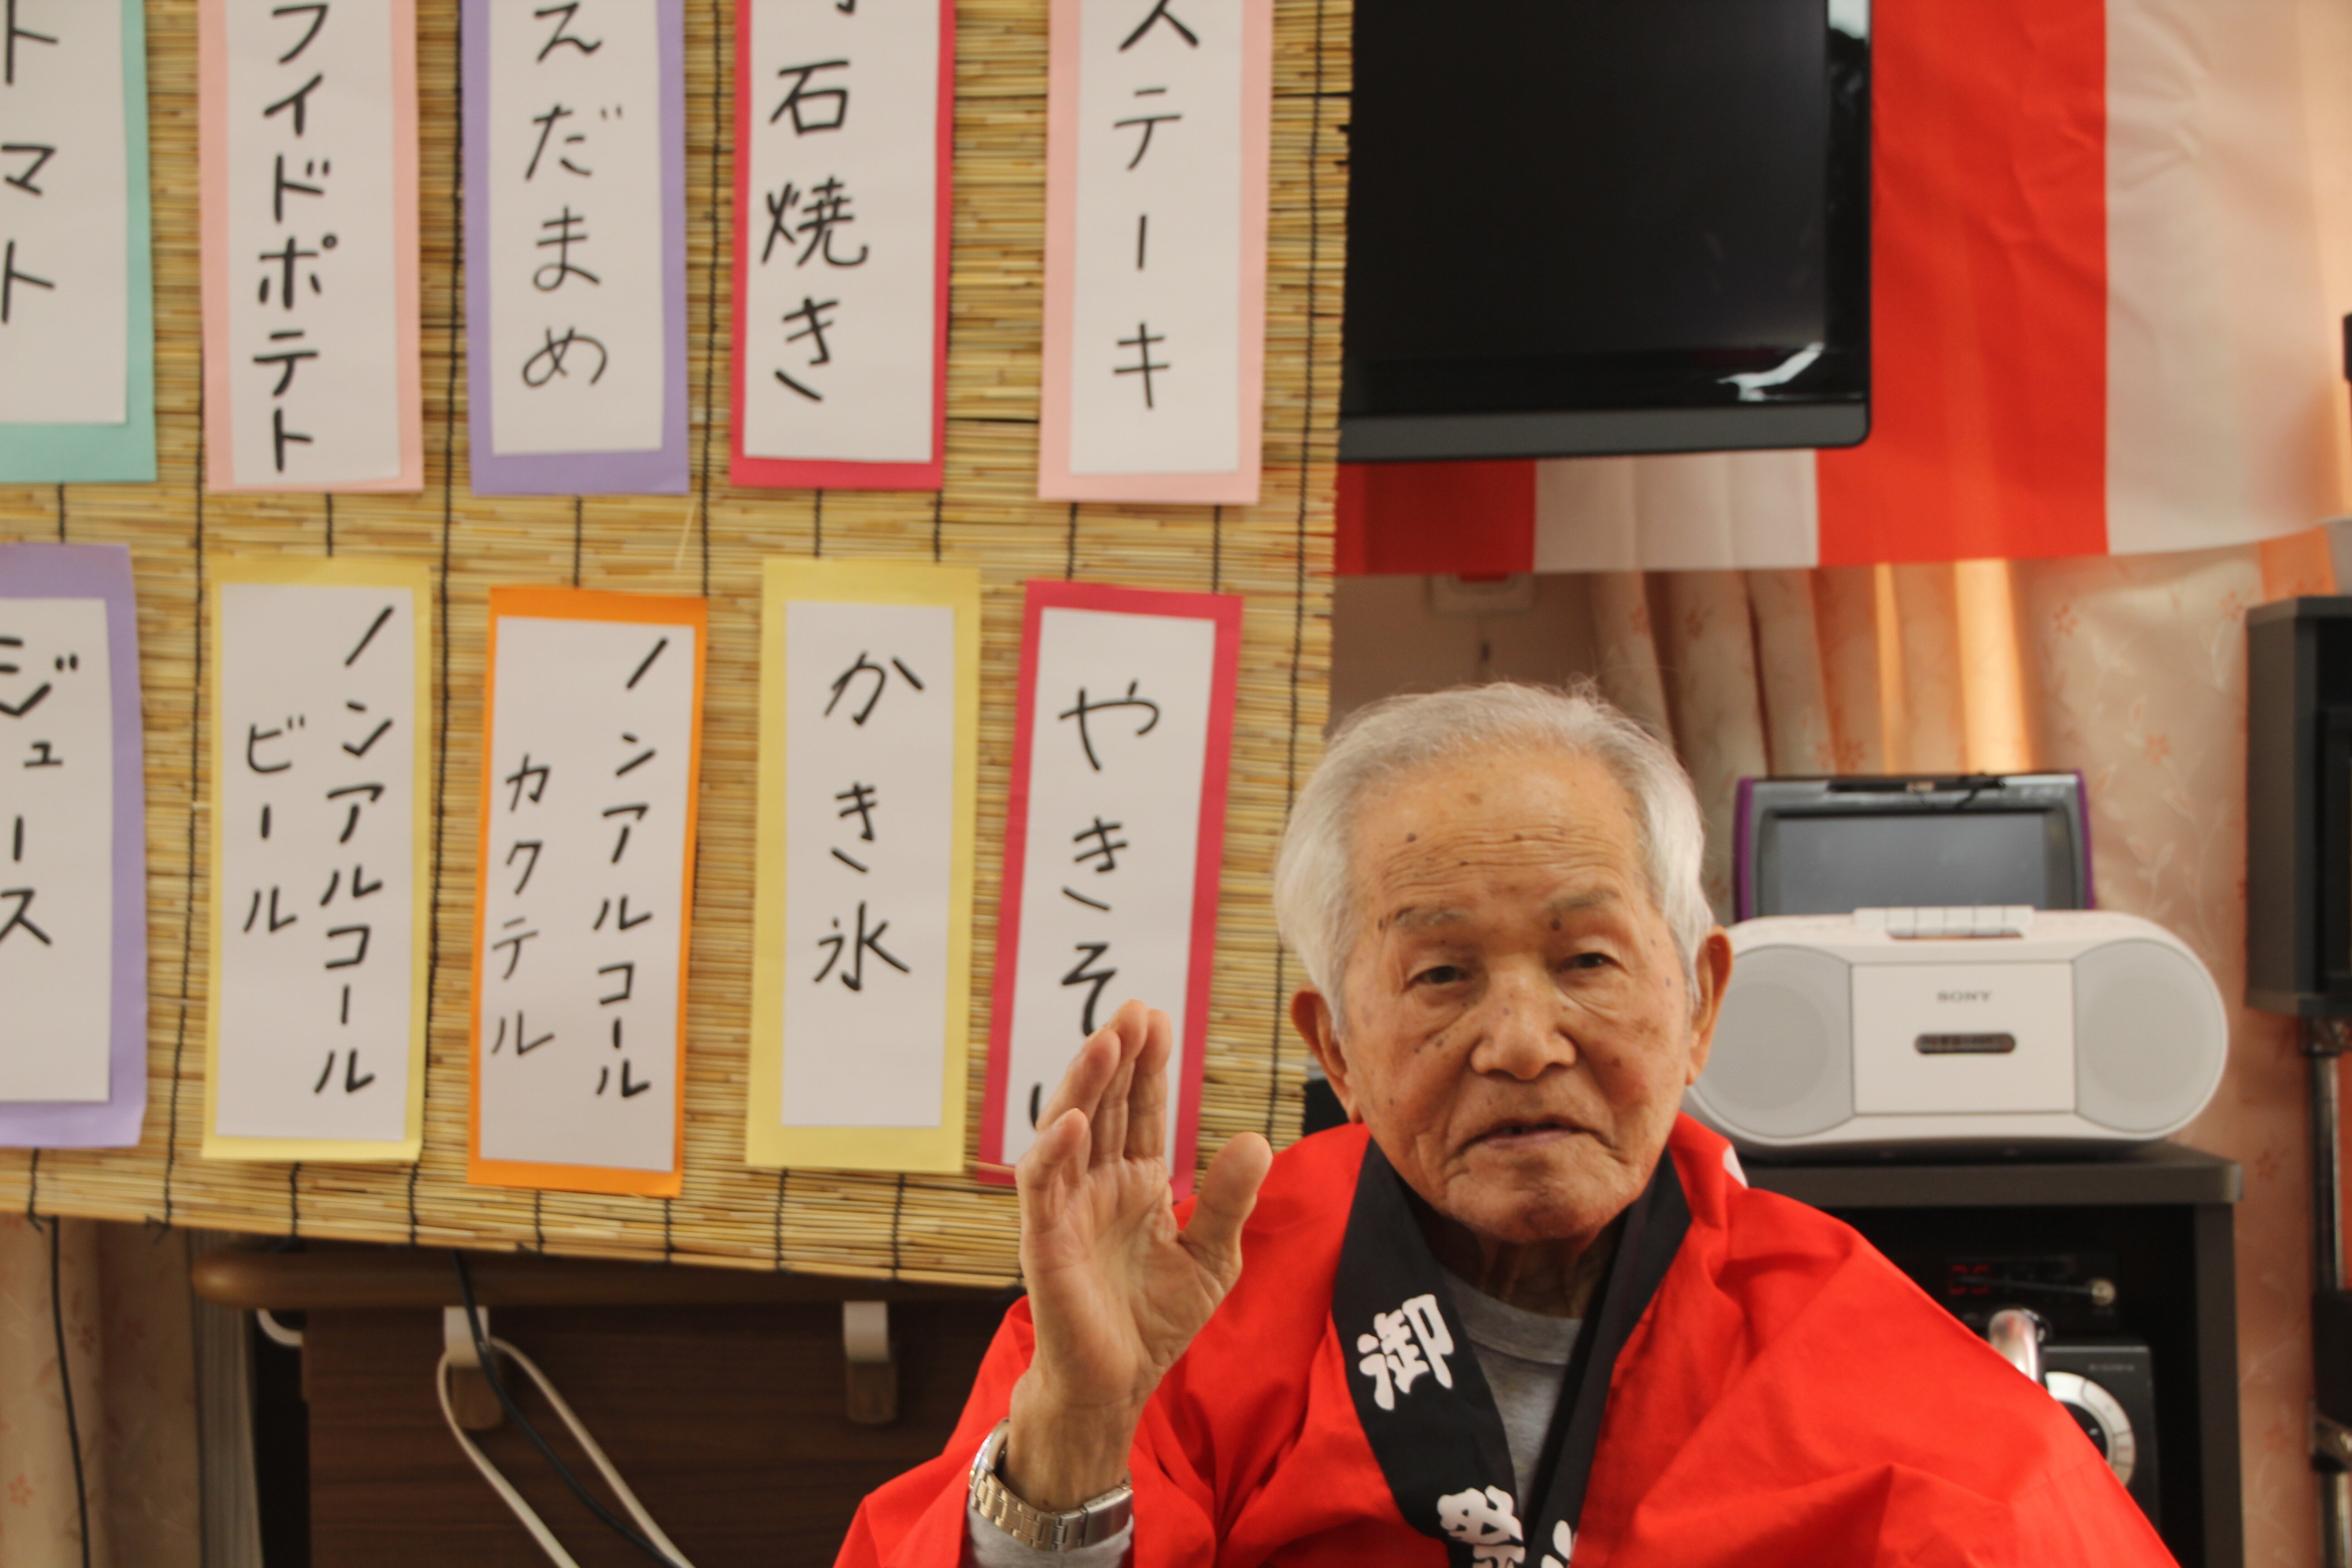 ステーキ
石焼き
えだまめ
フイドポテト
トマト
やきそ
かき氷
ノンアルコール
カクテル
ノンアルコール
ビール
ジュース
SONY
御
祭